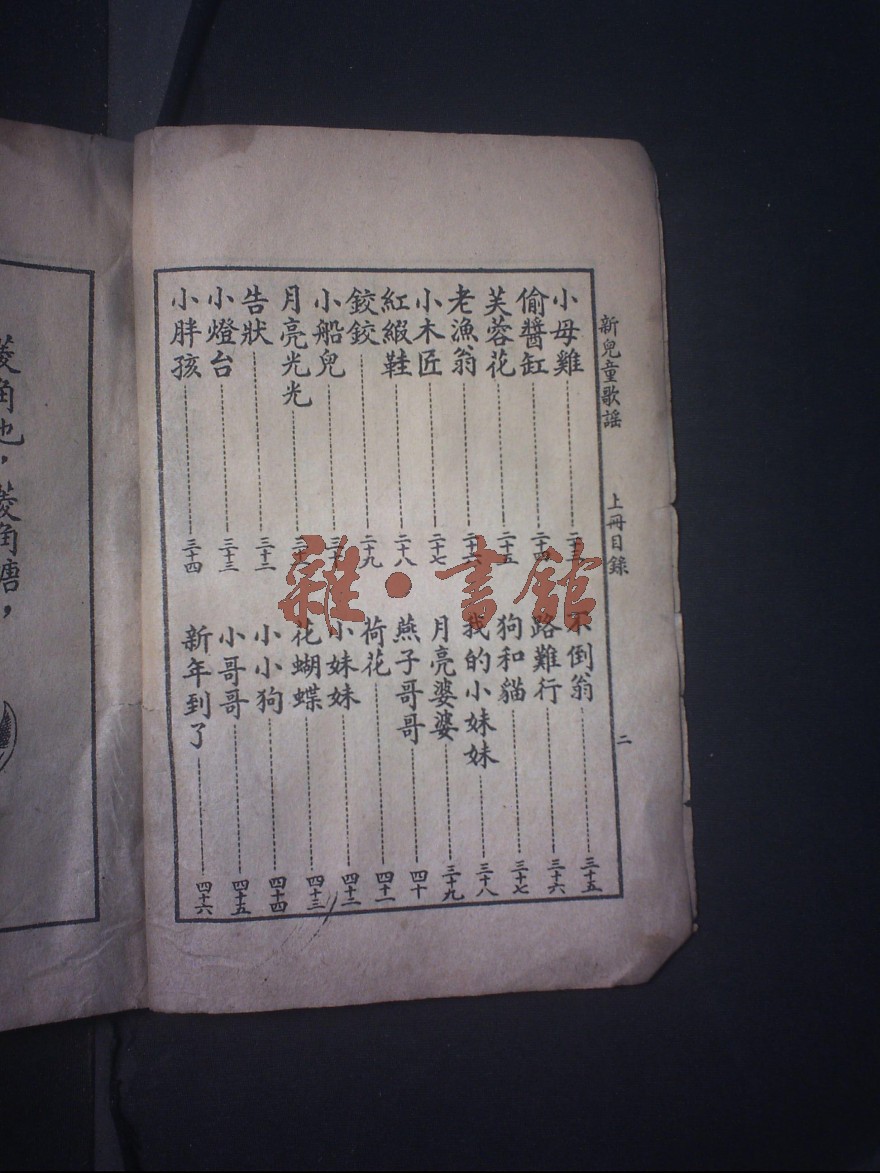 新兒童歌謠 上冊目錄 二
小母雞 二十三
偷醬缸 二十四
芙蓉花 二十五
老漁翁 二十六
小木匠 二十七
紅緞鞋 二十八
鉸鉸 二十九
小船兒 三十
月亮光光 三十一
告狀 三十二
小燈台 三十三
小胖孩 三十四
不倒翁 三十五
路難行 三十六
狗和貓 三十七
我的小妹妹 三十八
月亮婆婆 三十九
燕子哥哥 四十
荷花 四十一
小妹妹 四十二
花蝴蝶 四十三
小小狗 四十四
小哥哥 四十五
新年到了 四十六
菱角也，菱角塘，
雜·書館